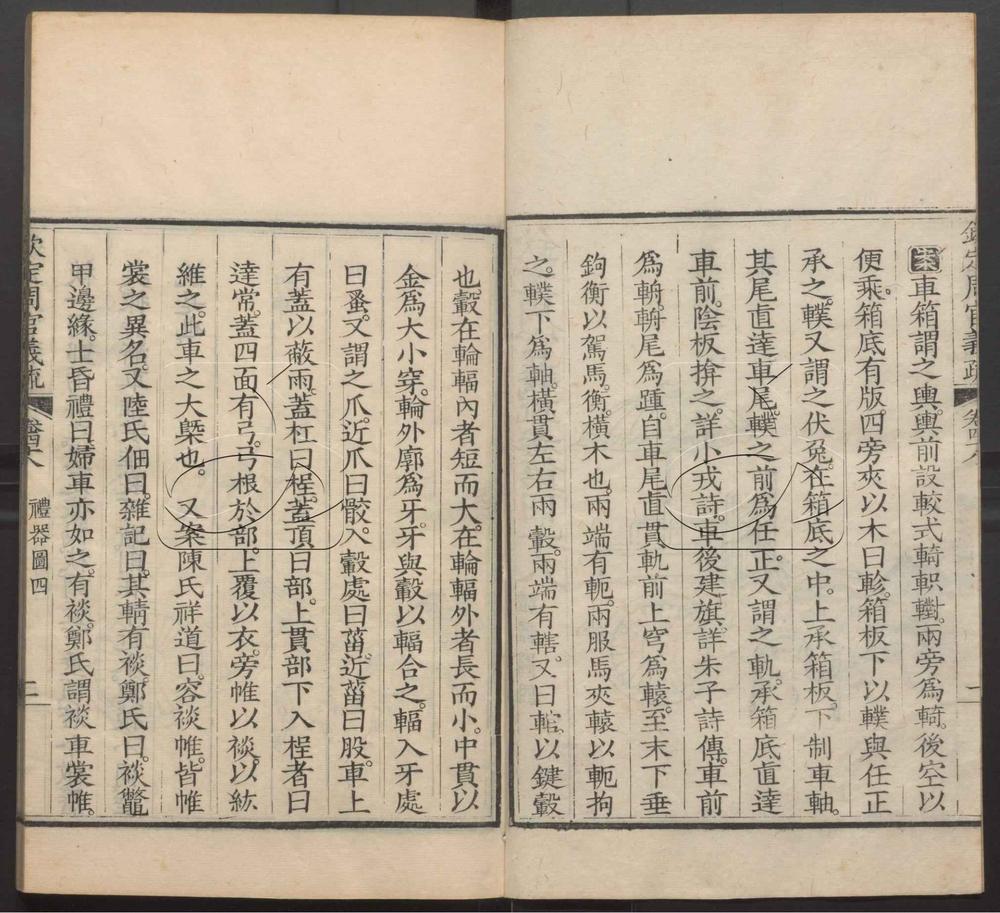 欽定周官義疏 卷四十八 一
案車箱謂之輿輿前設較式輢軹轛。兩旁爲輢。後空以
便乘。箱底有版四旁夾以木曰軫。箱板下以轐與任正
承之。轐又謂之伏兔。在箱底之中。上承箱板。下制車軸。
其尾直達車尾。轐之前爲任正。又謂之軓。承箱底直達
車前。陰板揜之。詳小戎詩。車後建旗。詳朱子詩傳。車前
爲輈。輈尾爲踵。自車尾直貫軓前上穹爲轅。至末下垂
鉤衡以駕馬。衡。橫木也。兩端有軛。兩服馬夾轅以軛拘
之。轐下爲軸。橫貫左右兩轂。兩端有轄。又曰輨。以鍵轂
也。轂在輪輻內者短而大。在輪輻外者長而小。中貫以
金爲大小穿。輪外廓爲牙。牙與轂以輻合之。輻入牙處
曰蚤。又謂之爪。近爪曰骹。入轂處曰菑。近菑曰股。車上
有蓋以蔽雨。蓋杠曰桯。蓋頂曰部。上貫部下入桯者曰
達常。蓋四面有弓。弓根於部。上覆以衣。旁帷以裧。以紘
維之。此車之大槩也。 又案陳氏祥道曰。容裧帷。皆帷
裳之異名。又陸氏佃曰。雜記曰。其輤有裧。鄭氏曰。裧鼈
甲邊緣。士昏禮曰。婦車亦如之。有裧。鄭氏謂裧車裳帷。
欽定周官義疏 卷四十八 禮器圖四 二